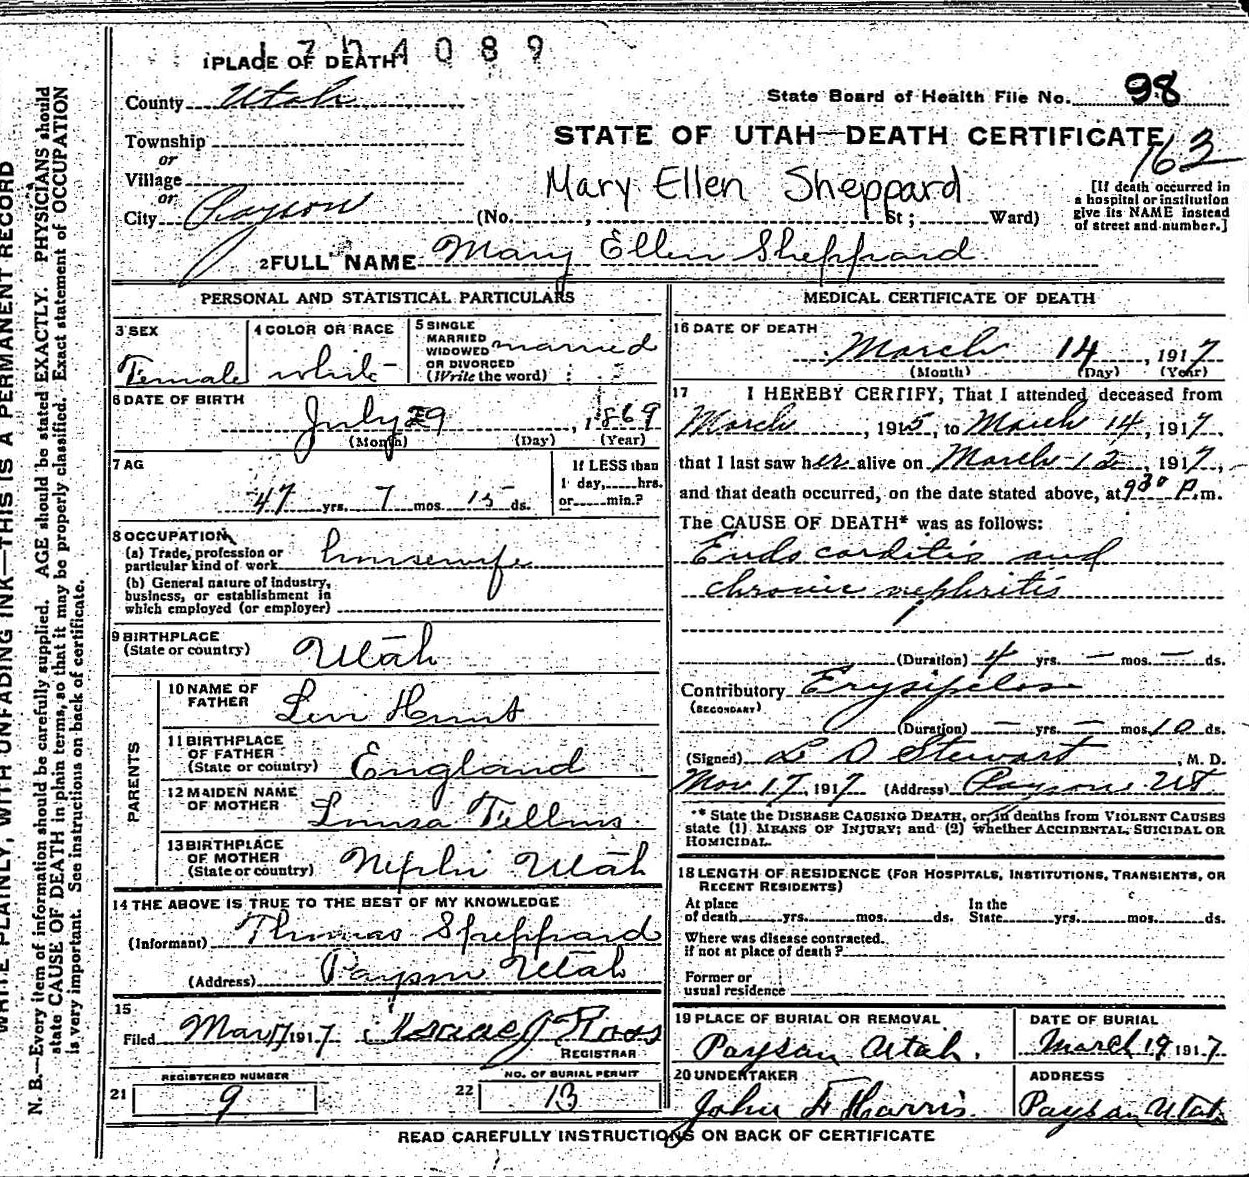 1 PLACE OF DEATH
4 0 8 9
County Utah
State Board of Health File No. 98
Township
or
Village
or
City Payson (No. , St; Ward)
STATE OF UTAH—DEATH CERTIFICATE
163
Mary Ellen Sheppard
[If death occurred in
a hospital or institution
give its NAME instead
of street and number.]
2 FULL NAME Mary Ellen Sheppard
PERSONAL AND STATISTICAL PARTICULARS
3 SEX
Female
4 COLOR OR RACE
white
5 SINGLE
MARRIED
WIDOWED
OR DIVORCED
(Write the word)
married
6 DATE OF BIRTH
July 29, 1869
(Month) (Day) (Year)
7 AG
47 yrs. 7 mos. 15 ds.
If LESS than
1 day, hrs.
or min.?
8 OCCUPATION
(a) Trade, profession or
particular kind of work housewife
(b) General nature of industry,
business, or establishment in
which employed (or employer)
9 BIRTHPLACE
(State or country) Utah
PARENTS
10 NAME OF
FATHER Levi Hunt
11 BIRTHPLACE
OF FATHER
(State or country) England
12 MAIDEN NAME
OF MOTHER Louisa
13 BIRTHPLACE
OF MOTHER
(State or country) Nephi Utah
14 THE ABOVE IS TRUE TO THE BEST OF MY KNOWLEDGE
(Informant) Thomas Sheppard
(Address) Payson Utah
15
Filed Mar 17 1917 Isaac J
REGISTRAR
REGISTERED NUMBER
21 9
NO. OF BURIAL PERMIT
22 13
MEDICAL CERTIFICATE OF DEATH
16 DATE OF DEATH
March 14, 1917
(Month) (Day) (Year)
17 I HEREBY CERTIFY, That I attended deceased from
March , 1915, to March 14, 1917,
that I last saw her alive on March 12, 1917,
and that death occurred, on the date stated above, at 930 P.m.
The CAUSE OF DEATH* was as follows:
Endocarditis and
chronic nephritis
(Duration) 4 yrs. — mos. — ds.
Contributory Erysipelas
(SECONDARY)
(Duration) — yrs. — mos. 10 ds.
(Signed) L D Stewart, M. D.
17, 1917 (Address) Payson Ut
* State the DISEASE CAUSING DEATH, or, in deaths from VIOLENT CAUSES
state (1) MEANS OF INJURY; and (2) whether ACCIDENTAL, SUICIDAL OR
HOMICIDAL.
18 LENGTH OF RESIDENCE (FOR HOSPITALS, INSTITUTIONS, TRANSIENTS, OR
RECENT RESIDENTS)
At place
of death yrs. mos. ds.
In the
State yrs. mos. ds.
Where was disease contracted,
if not at place of death?
Former or
usual residence
19 PLACE OF BURIAL OR REMOVAL
Payson Utah.
DATE OF BURIAL
March 19 1917
20 UNDERTAKER
John F Harris
ADDRESS
Payson Utah
READ CAREFULLY INSTRUCTIONS ON BACK OF CERTIFICATE
WRITE PLAINLY, WITH UNFADING INK—THIS IS A PERMANENT RECORD
N. B.—Every item of information should be carefully supplied. AGE should be stated EXACTLY. PHYSICIANS should
state CAUSE OF DEATH in plain terms, so that it may be properly classified. Exact statement of OCCUPATION
is very important. See instructions on back of certificate.